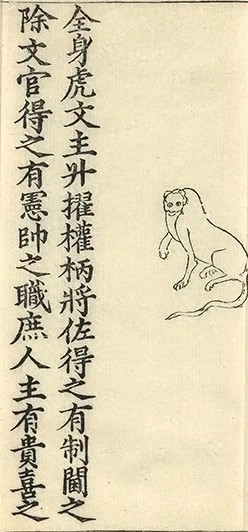 全身虎文主升擢權柄將佐得之有制閫之
除文官得之有憲帥之職庶人主有貴喜之